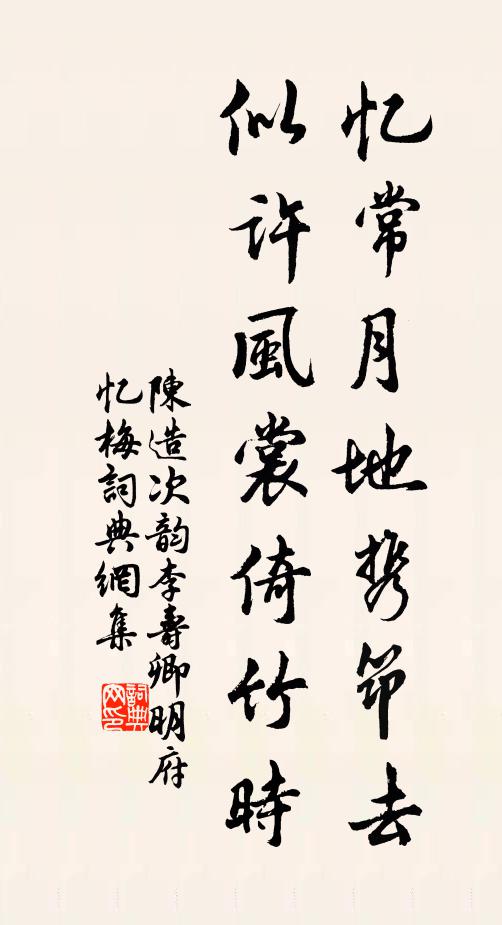 忆常月地携筇去
似许風裳倚竹時
陳造次韵李壽卿明府
忆梅詞典網集
詞典网印